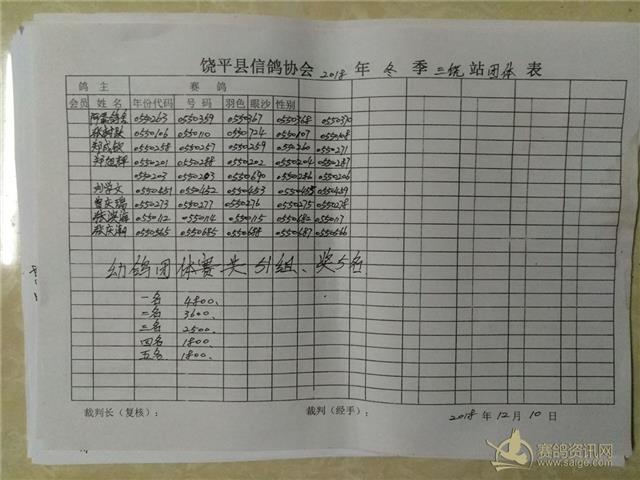 饶平县信鸽协会 2018 年 冬 季 三饶 站 团体 表
鸽 主 赛 鸽
会员 姓 名 年份代码 号 码 羽色 眼沙 性别
0550263 0550259 0550367 0550368 0550370
0550106 0550110 0550724 0550107 0550108
郑成钦 0550258 0550257 0550259 0550260 0550271
0550201 0550288 0550202 0550204 0550287
0550203 0550690 0550286 0550206
刘学文 0550451 0550452 0550453 0550459
曾庆瑞 0550273 0550277 0550276 0550275 0550278
张滨海 0550112 0550114 0550115 0550682 0550117
张庆潮 0550565 0550685 0550688 0550687 0550566
幼鸽团体赛共51组、奖5名
一名 4800、
二名 3600、
三名 2500、
四名 1800、
五名 1800、
裁判长(复核): 裁判(经手): 2018 年 12 月 10 日
赛鸽资讯网
www.saige.com